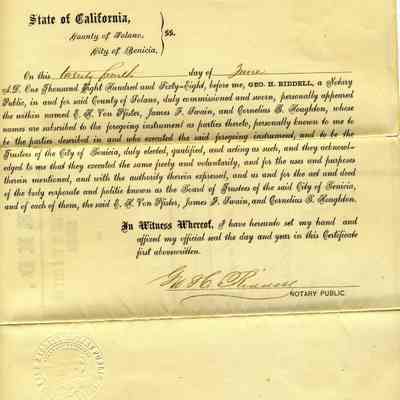 State of California,
County of Solano,
City of Benicia,
} ss.
On this twenty fourth day of June
A.D. One Thousand Eight Hundred and Sixty-Eight, before me, GEO. H. RIDDELL, a Notary
Public, in and for said County of Solano, duly commissioned and sworn, personally appeared
the within named E. H. Von Pfister, James F. Swain, and Cornelius S. Houghdon, whose
names are subscribed to the foregoing instrument as parties thereto, personally known to me to
be the parties described in and who executed the said foregoing instrument, and to be the
Trustees of the City of Benicia, duly elected, qualified, and acting as such, and they acknowl-
edged to me that they executed the same freely and voluntarily, and for the uses and purposes
therein mentioned, and with the authority therein expressed, and as and for the act and deed
of the body corporate and politic known as the Board of Trustees of the said City of Benicia,
and of each of them, the said E. H. Von Pfister, James F. Swain, and Cornelius S. Houghdon.
In Witness Whereof, I have hereunto set my hand and
affixed my official seal the day and year in this Certificate
first abovewritten.
Geo H Riddell
NOTARY PUBLIC.